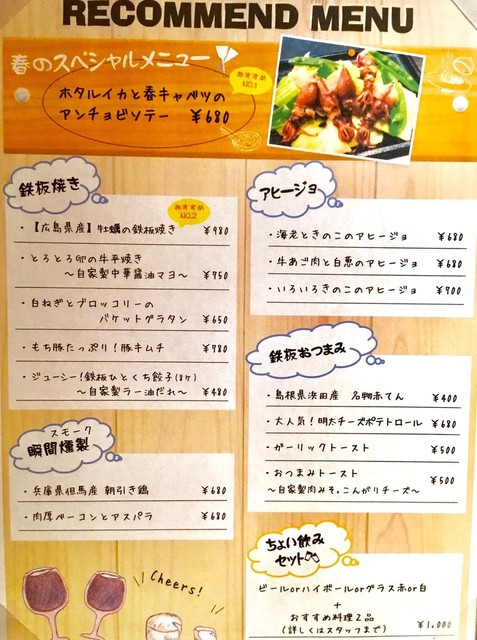 RECOMMEND MENU
春のスペシャルメニュー
おすすめ
NO.1
ホタルイカと春キャベツの
アンチョビソテー ¥680
鉄板焼き
おすすめ
NO.2
・【広島県産】牡蠣の鉄板焼き ¥980
・とろとろ卵の牛平焼き
～自家製中華醤油マヨ～ ¥750
・白ねぎとブロッコリーの
バケットグラタン ¥650
・もち豚たっぷり!豚キムチ ¥780
・ジューシー!鉄板ひとくち餃子(8ヶ)
～自家製ラー油だれ～ ¥480
スモーク
瞬間燻製
・兵庫県但馬産 朝引き鶏 ¥680
・肉厚ベーコンとアスパラ ¥680
Cheers!
アヒージョ
・海老ときのこのアヒージョ ¥680
・牛あご肉と白葱のアヒージョ ¥680
・いろいろきのこのアヒージョ ¥700
鉄板おつまみ
・島根県浜田産 名物赤てん ¥400
・大人気!明太チーズポテトロール ¥680
・ガーリックトースト ¥500
・おつまみトースト ¥500
～自家製肉みそ。こんがりチーズ～
ちょい飲み
セット
ビールorハイボールorグラス赤or白
+
おすすめ料理2品
(詳しくはスタッフまで) ¥1,000